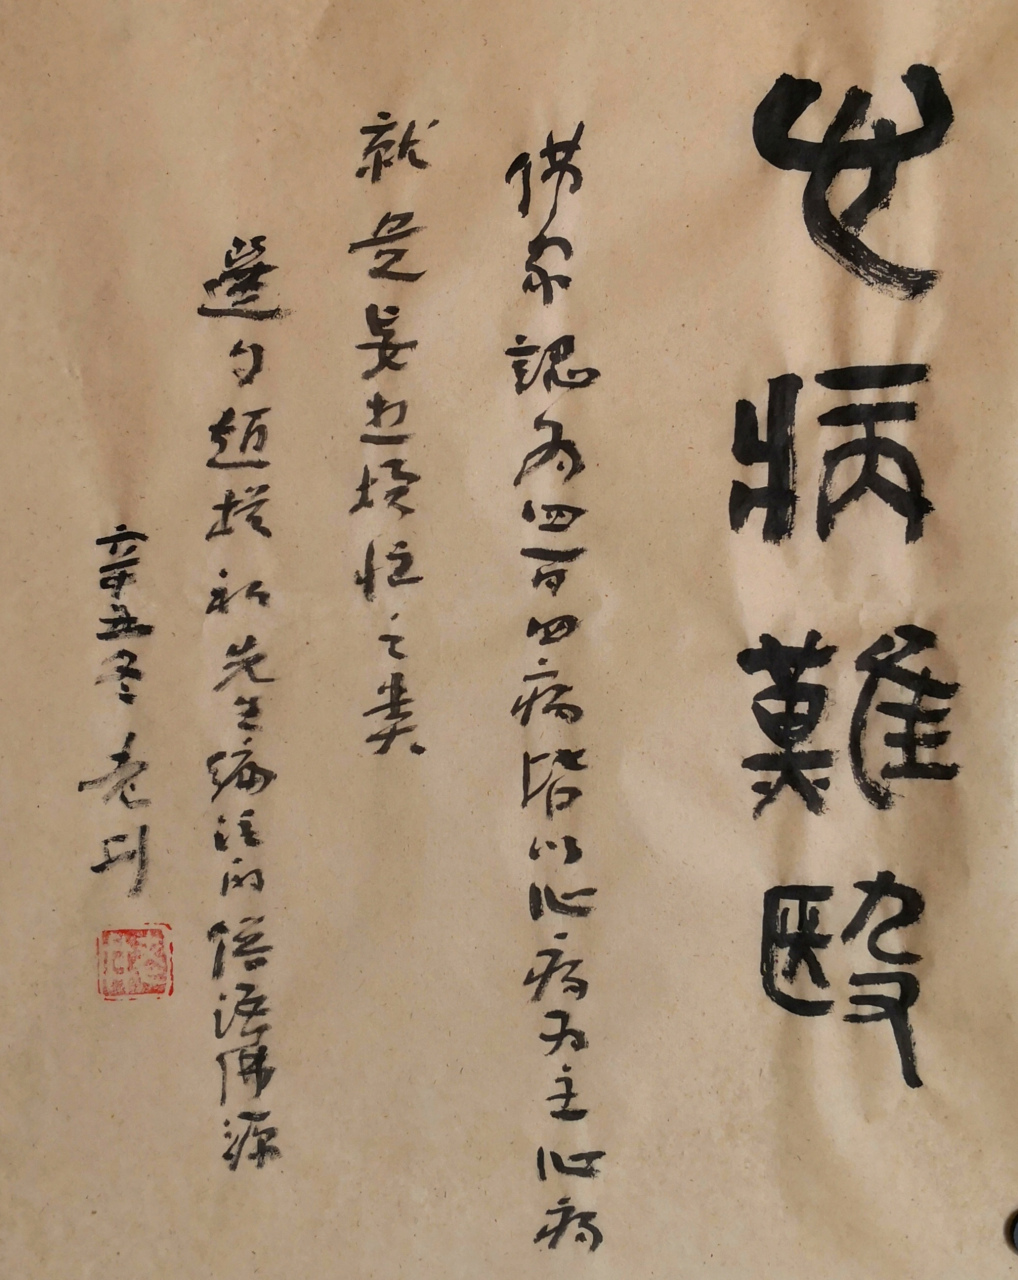 心病難毉
佛家認為四百四病皆以心病為主心病
就是妄想煩惱之類
選句趙樸初先生編注的俗語佛源
辛丑冬老